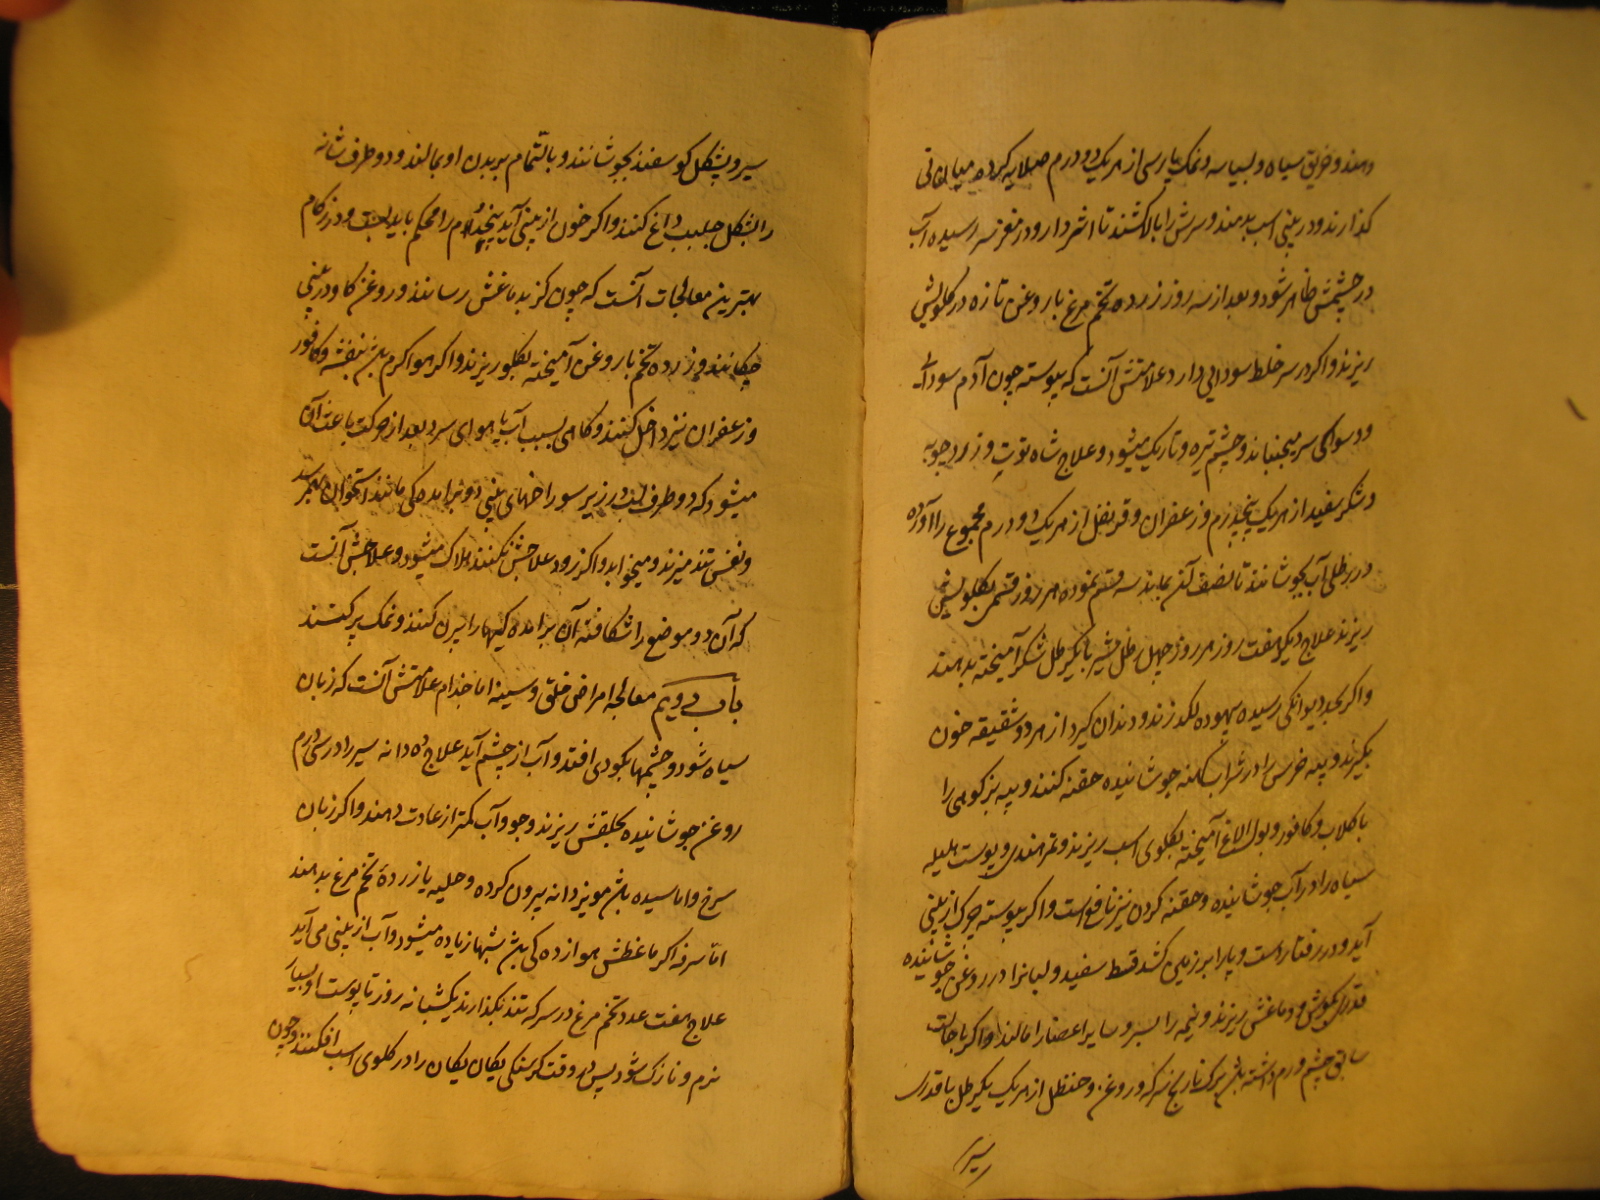 دهند و خربق سیاه و بسباسه و نمک پارسی از هریک دو درم صلایه کرده میان نی
کذارند و در بینی اسب بدمند و سرش را بالا کشند تا اثر دارو در مغز سر رسیده آب
در چشمش ظاهر شود و بعد از سه روز زرده تخم مرغ با روغن تازه در کلویش
ریزند و اکر در سر خلط سودایی دارد علامتش آنست که پیوسته چون آدم سودایی
سر میجنباند و چشم تیره و تاریک میشود علاج شاه توت و زردچوبه
و شکر سفید از هریک پنجدرم و زعفران و قرنفل از هریک دو درم مجموع را آورده
در رطلی آب بجوشانند تا نصف آن بماند سه قسم نموده هر روز قسمی بکلویش
ریزند علاج دیکر هفت روز هر روز چهل رطل شیر با یکرطل شکر آمیخته بدهند
و اکر بحد دیوانکی رسیده بیهوده لکد زند و دندان کیرد از هر دو شقیقه خون
بکیرند و پیه خرس را در شراب کهنه جوشانیده حقنه کنند و پیه بز کوهی را
با کلاب و کافور و بول الاغ آمیخته بکلوی اسب ریزند و تمر هندی و پوست هلیله
سیاه را در آب جوشانیده و حقنه کردن نیز نافع است و اکر پیوسته چرک از بینی
آید و در رفتار است و پا را بر زمین کشد قسط سفید و لبانرا در روغن جوشانیده
قدری بکوش و دماغش ریزند و نیمه را بسر و سایر اعضا را مالند و اکر با حالت
سابق چشم ورم داشته باشد برک نارنج سرکه و روغن و حنظل از هریک یکرطل با قدری
سیر
سیر و پشکل کوسفند بجوشانند و بالتمام بر بدن او بمالند و دو طرف شانه
را بشکل صلیب داغ کنند و اکر خون از بینی آید پنجه ام را محکم باید بست و در زکام
بهترین معالجات آنست که چون کز بدماغش رسانند و روغن کاو در بینی
چکانند و زرده تخم با روغن آمیخته بکلو ریزند و اکر هوا کرم باشد بنفشه و کافور
و زعفران نیز داخل کنند و کاهی بسبب آب یا هوای سرد بعد از حرکت باعث آن
میشود که دو طرف لب در زیر سوراخهای بینی دو برامده کی مانند استخوان بهمرسد
و نفس تند میزند و میخوابد و اکر زود علاجش نکنند هلاک میشود و علاجش آنست
که آن دو موضع را شکافته آن برامده کیها را بیرن کنند و نمک پر کنند
باب سی ویکم معالجه امراض حلق و سینه اما جذام علامتش آنست که زبان
سیاه شود و چشمها بکودی افتد و آب از چشم آید علاج ده دانه سیر را در سی درم
روغن جوشانیده بحلقش ریزند و جو و آب کمتر از عادت دهند و اکر زبان
سرخ و اماسیده باشد مویز دانه بیرون کرده و حلبه یا زرده تخم مرغ بدهند
اما سرفه اکر باعثش هوازده کی باشد شبها زیاده میشود و آب از بینی می آید
علاج هفت عدد تخم مرغ در سرکه تند بکذارند یکشبانه روز تا پوست او بسیار
نرم و نازک شود پس در وقت کرسنکی یکان یکان را در کلوی اسب افکنند و چون